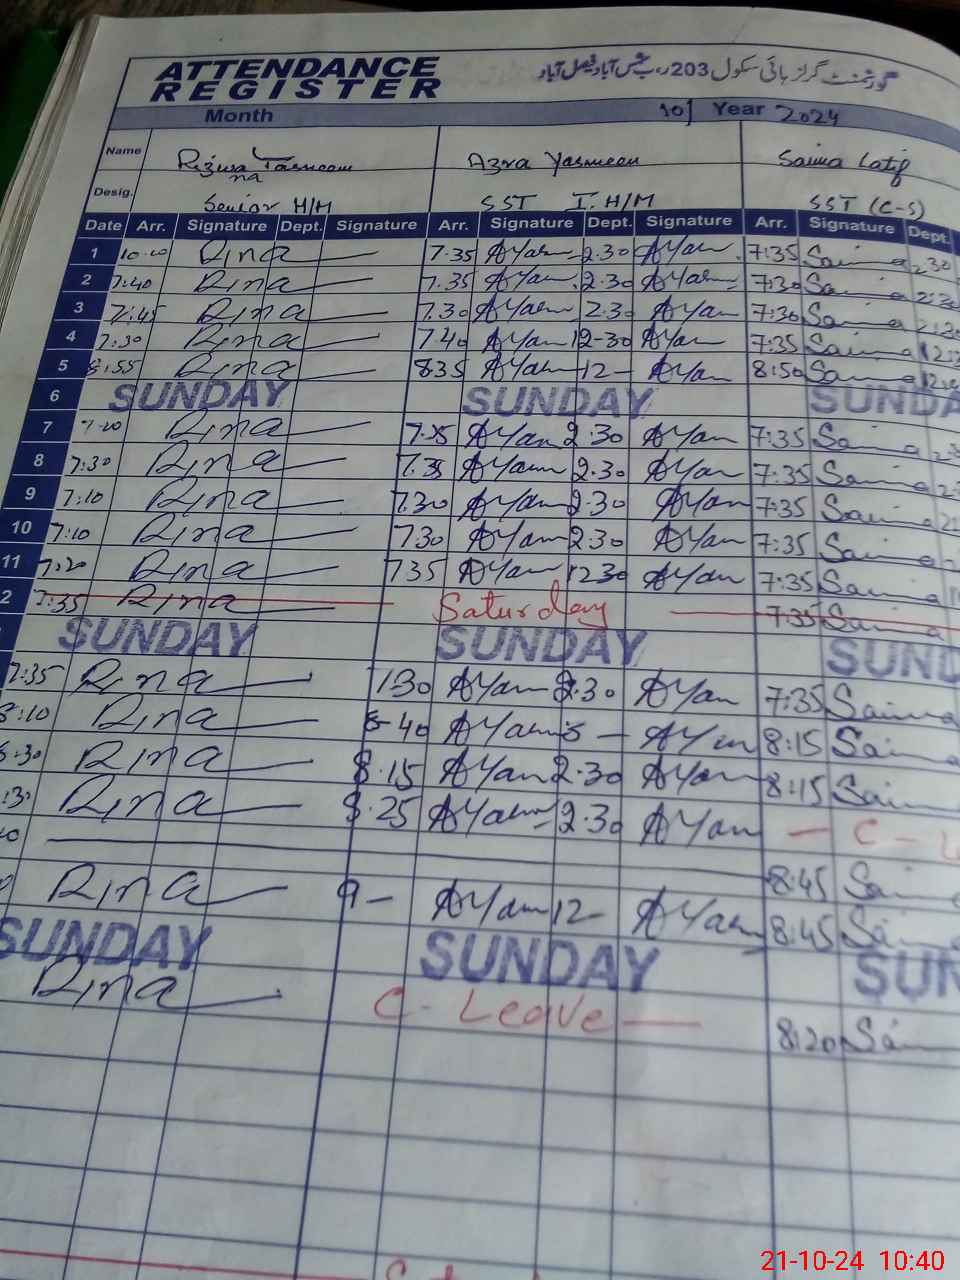 ATTENDANCE REGISTER گورنمنٹ گرلز ہائی سکول 203 ر ب شمس آباد فیصل آباد
Month 10 Year 2024
Name Azra Yasmeen Saima Latif
Desig. Senior H/M SST I. H/M SST (C-S)
Date Arr. Signature Dept. Signature Arr. Signature Dept. Signature Arr. Signature Dept.
1 10:10 Rina 7.35 AYam 2.30 AYam 7:35 Saima 2:30
2 7:40 Rina 7.35 AYam 2.30 AYam 7:30 Saima
3 7:45 Rina 7.30 AYam 2.30 AYam 7:30 Saima
4 7:30 Rina 7.40 AYam 12-30 AYam 7:35 Saima
5 8:55 Rina 835 AYam 12- AYam 8:50 Saima
6 SUNDAY SUNDAY SUNDA
7 Rina 7.35 AYam 2.30 AYam 7:35 Saima
8 7:30 Rina 7.35 AYam 2.30 AYam 7:35 Saima
9 7:10 Rina 7.30 AYam 2.30 AYam 7:35 Saima
10 7:10 Rina 7.30 AYam 2.30 AYam 7:35 Saima
11 7:20 Rina 735 AYam 1230 AYam 7:35 Saima
2 7:35 Rina Saturday 7:35 Saima
SUNDAY SUNDAY SUND
7:35 Rina 7.30 AYam 2.30 AYam 7:35 Saima
8:10 Rina 8-40 AYam 3 - AYam 8:15 Sai
8:30 Rina 8.15 AYam 2.30 AYam 8:15 Saim
:30 Rina 8.25 AYam 2.30 AYam — C - L
8:45 Sai
Rina 9- AYam 12- AYam 8:45 Sai
SUNDAY SUNDAY SUN
Rina C- Leave — 8:20 Sai
21-10-24 10:40